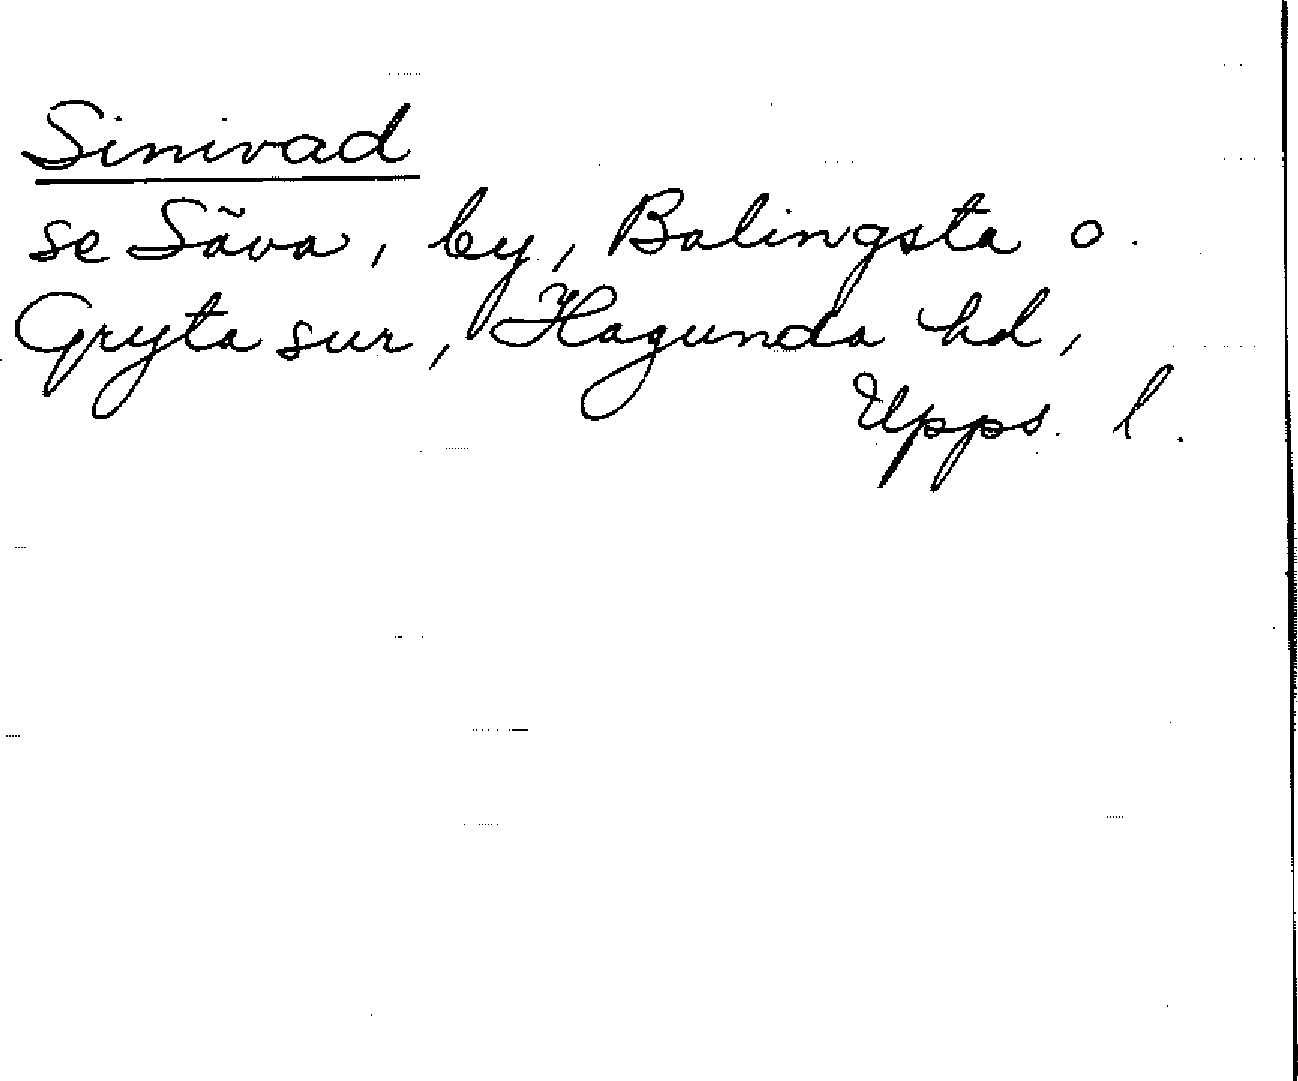 Sinivad
se Säva, by, Balingsta o.
Gryta snr, Hagunda hd,
Upps. l.